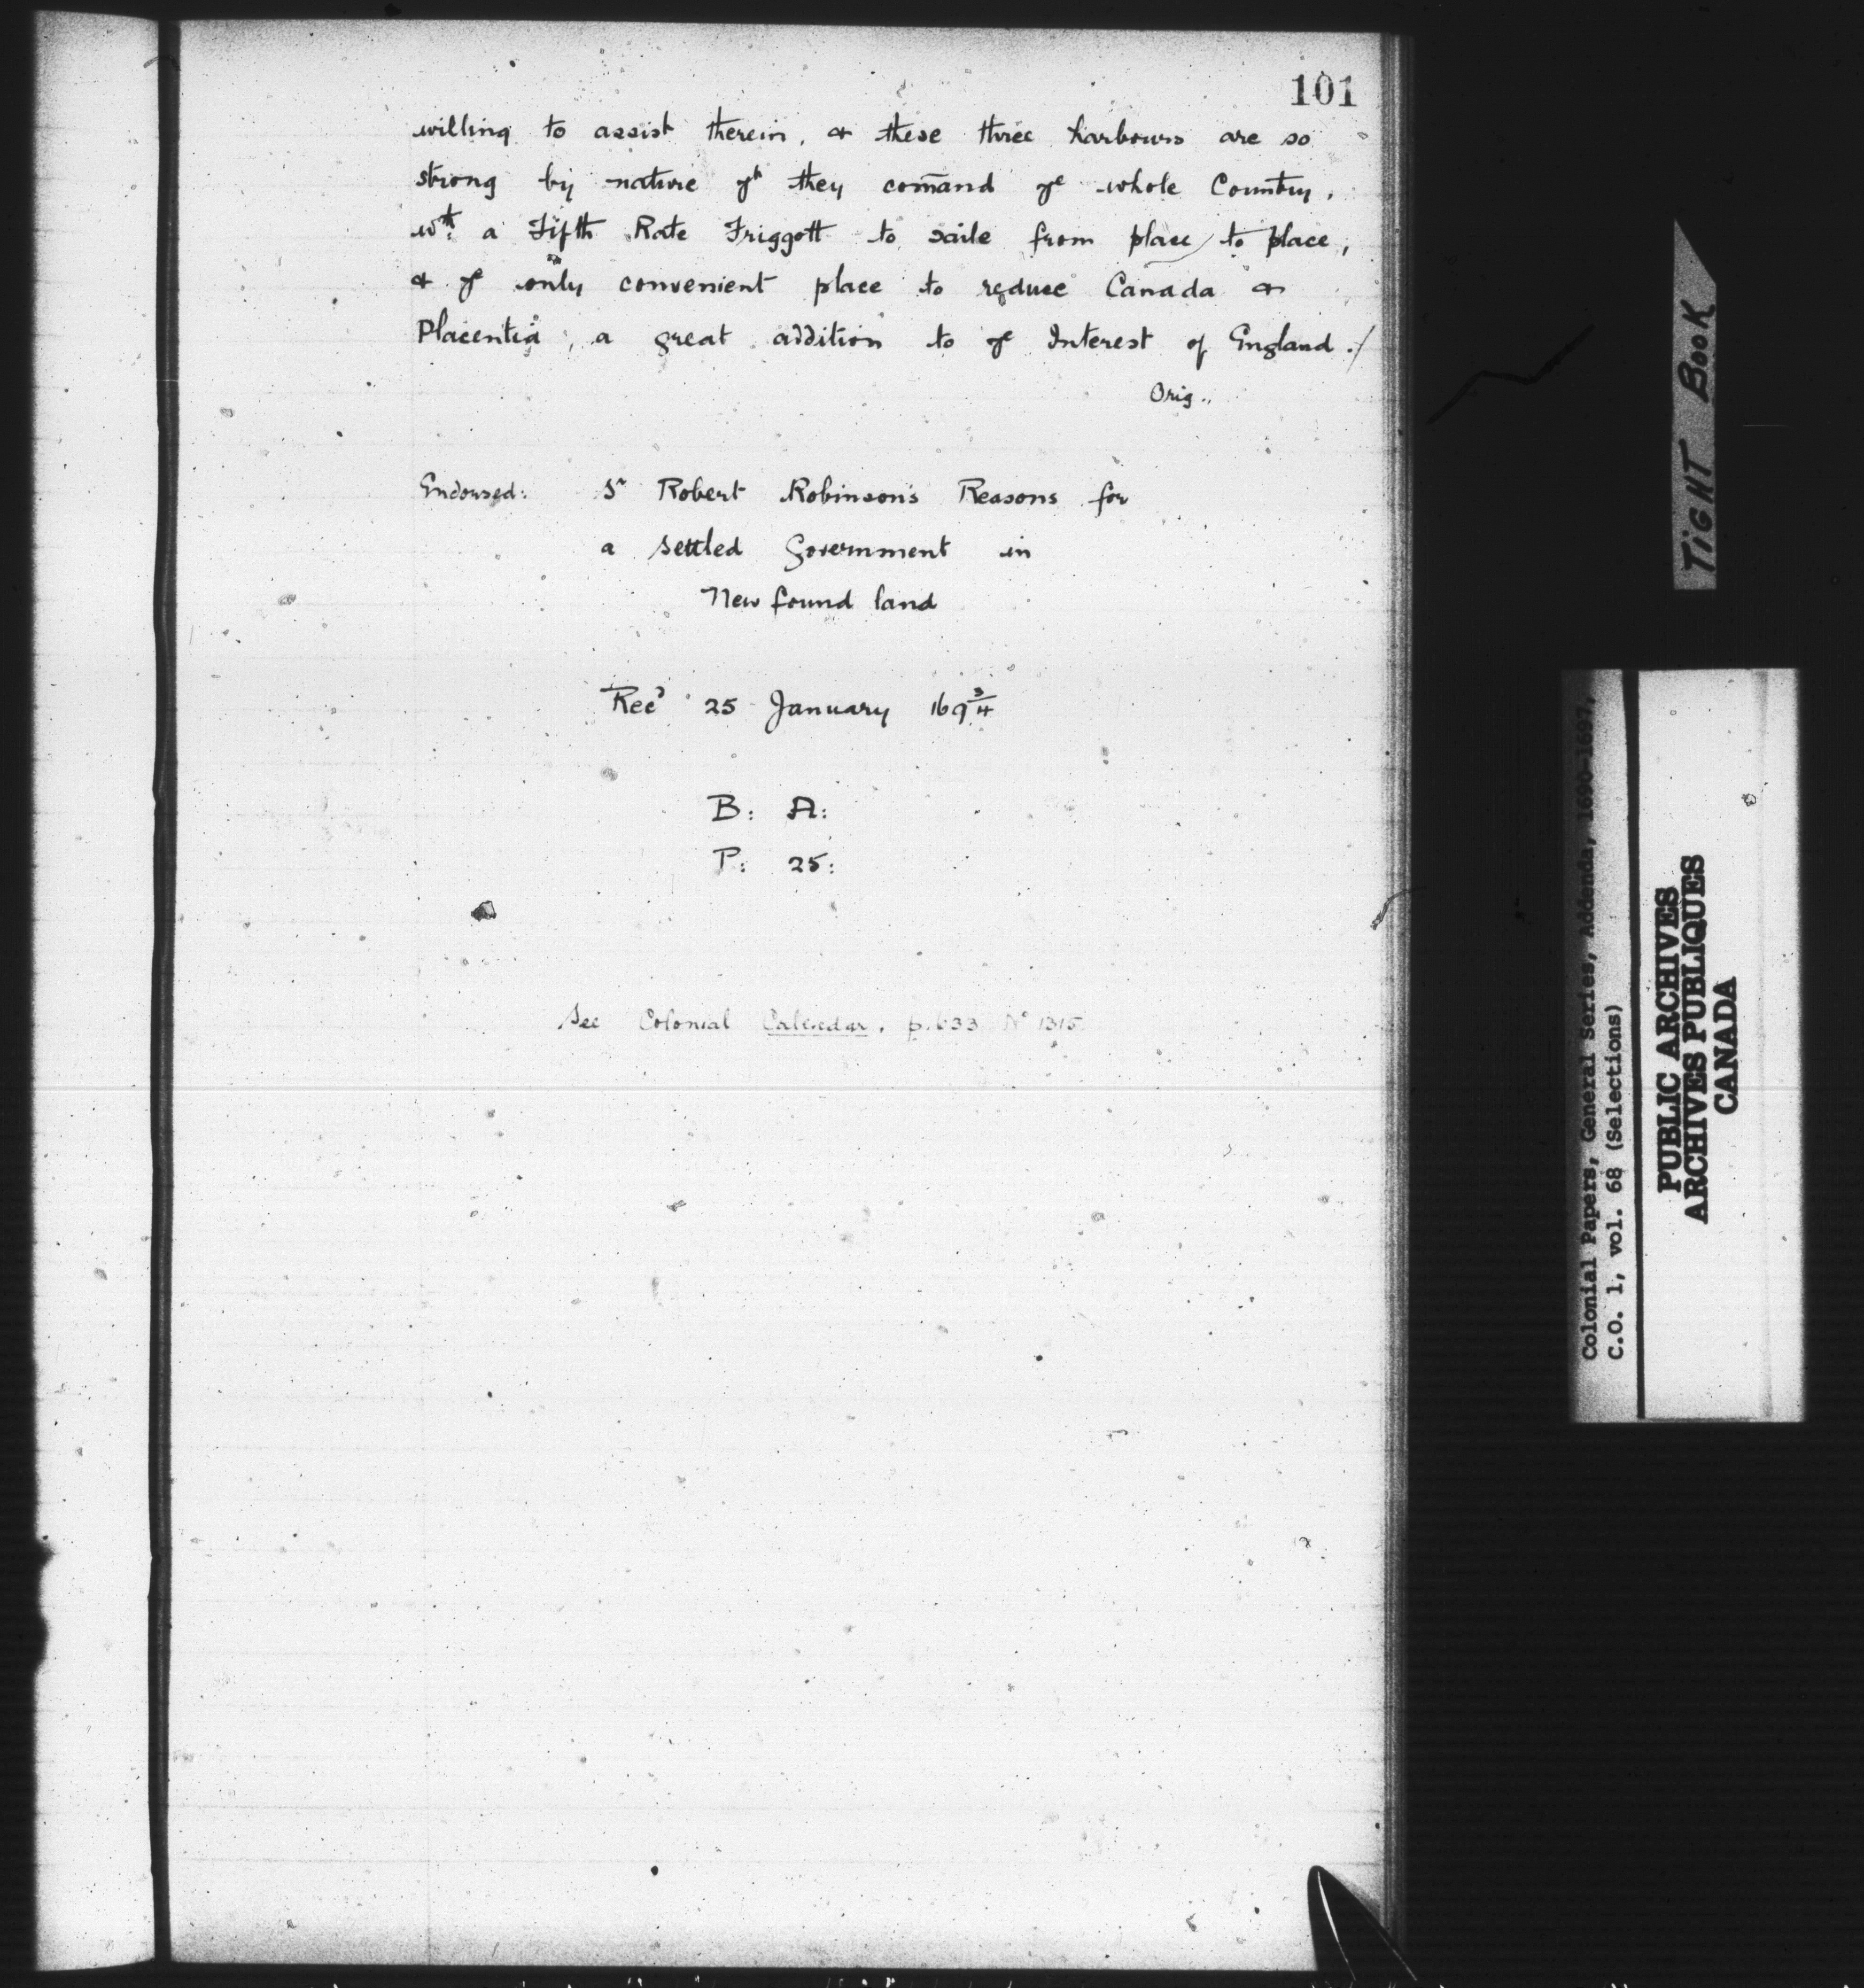 101
willing to assist therein, & these three harbours are so
strong by nature yt they comãnd ye whole Country,
wt: a Fifth Rate Friggott to saile from place to place,
& ye only convenient place to reduce Canada &
Placentia, a great addition to ye Interest of England ./
Orig..
Endorsed: Sr Robert Robinson's Reasons for
a settled Government in
New found land
Recd 25 January 169 3/4
B: A:
P: 25:
See Colonial Calendar, p. 633 No 1315
TIGHT BOOK
Colonial Papers, General Series, Addenda, 1690-1697,
C.O. 1, vol. 68 (Selections)
PUBLIC ARCHIVES
ARCHIVES PUBLIQUES
CANADA